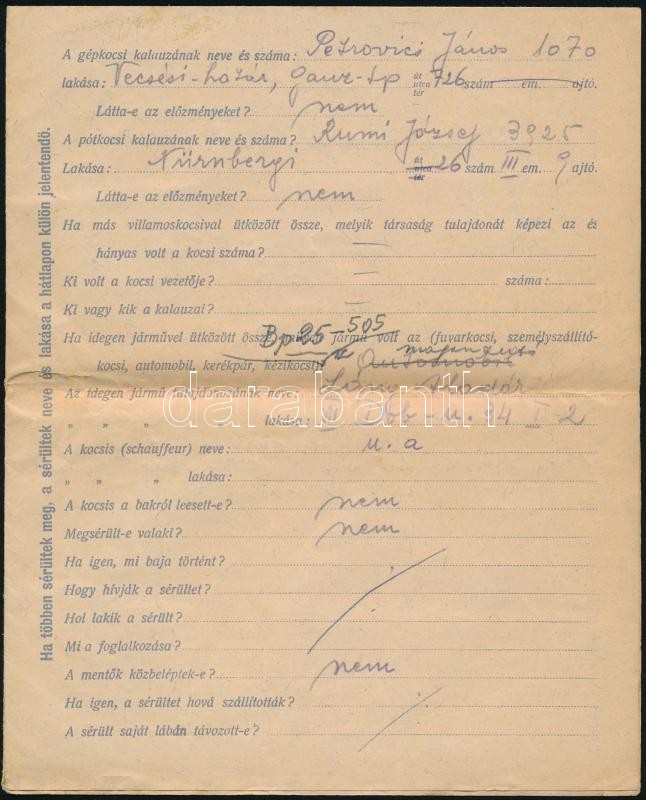 A gépkocsi kalauzának neve és száma: Petrovics János 1070
lakása: Vecsési-határ, Ganz-tp út utca tér 726 szám em. ajtó.
Látta-e az előzményeket? nem
A pótkocsi kalauzának neve és száma? Rumi József 3925
Lakása: Nürnbergi út utca tér 26 szám III em. 9 ajtó.
Látta-e az előzményeket? nem
Ha más villamoskocsival ütközött össze, melyik társaság tulajdonát képezi az és
hányas volt a kocsi száma? —
Ki volt a kocsi vezetője? — száma:
Ki vagy kik a kalauzai? —
Ha idegen járművel ütközött össze, jármű volt az (fuvarkocsi, személyszállító-
Bp 25-505
kocsi, automobil, kerékpár, kézikocsi)?
Az idegen jármű tulajdonosának neve:
„ „ „ „ lakása: II - u. 94 I 2
A kocsis (schauffeur) neve: u. a
„ „ „ lakása:
A kocsis a bakról leesett-e? nem
Megsérült-e valaki? nem
Ha igen, mi baja történt?
Hogy hívják a sérültet?
Hol lakik a sérült?
Mi a foglalkozása?
A mentők közbeléptek-e? nem
Ha igen, a sérültet hová szállították?
A sérült saját lábán távozott-e?
Ha többen sérültek meg, a sérültek neve és lakása a hátlapon külön jelentendő.
darabanth.com